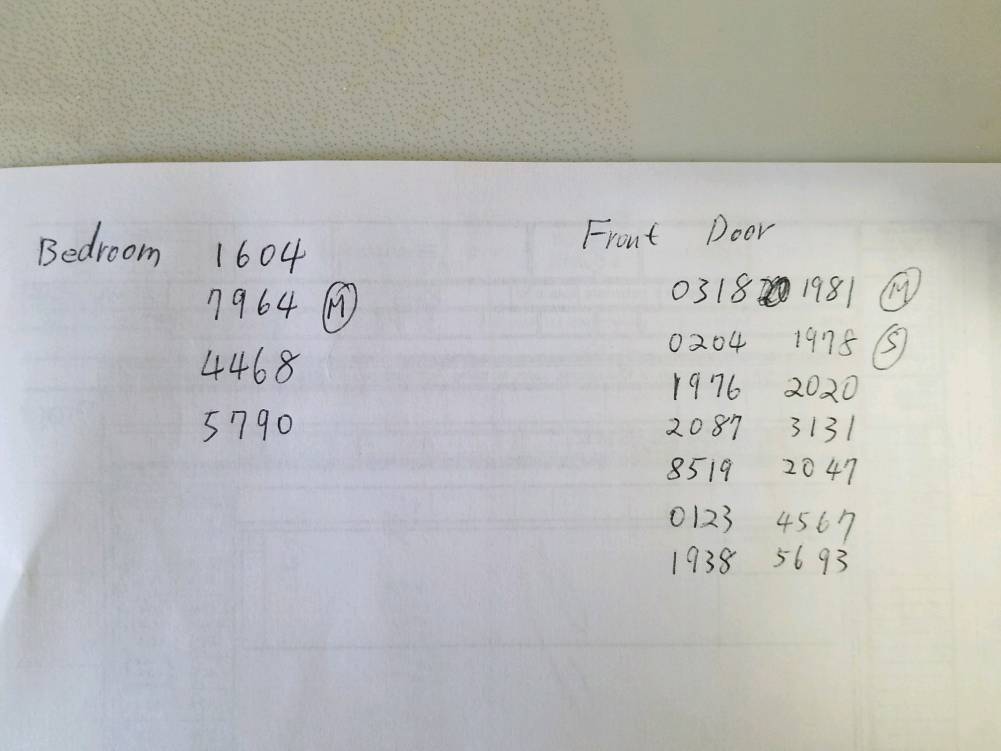 Bedroom 1604
7964 Ⓜ
4468
5790
Front Door
0318 1981 Ⓜ
0204 1978 Ⓢ
1976 2020
2087 3131
8519 2047
0123 4567
1938 5693